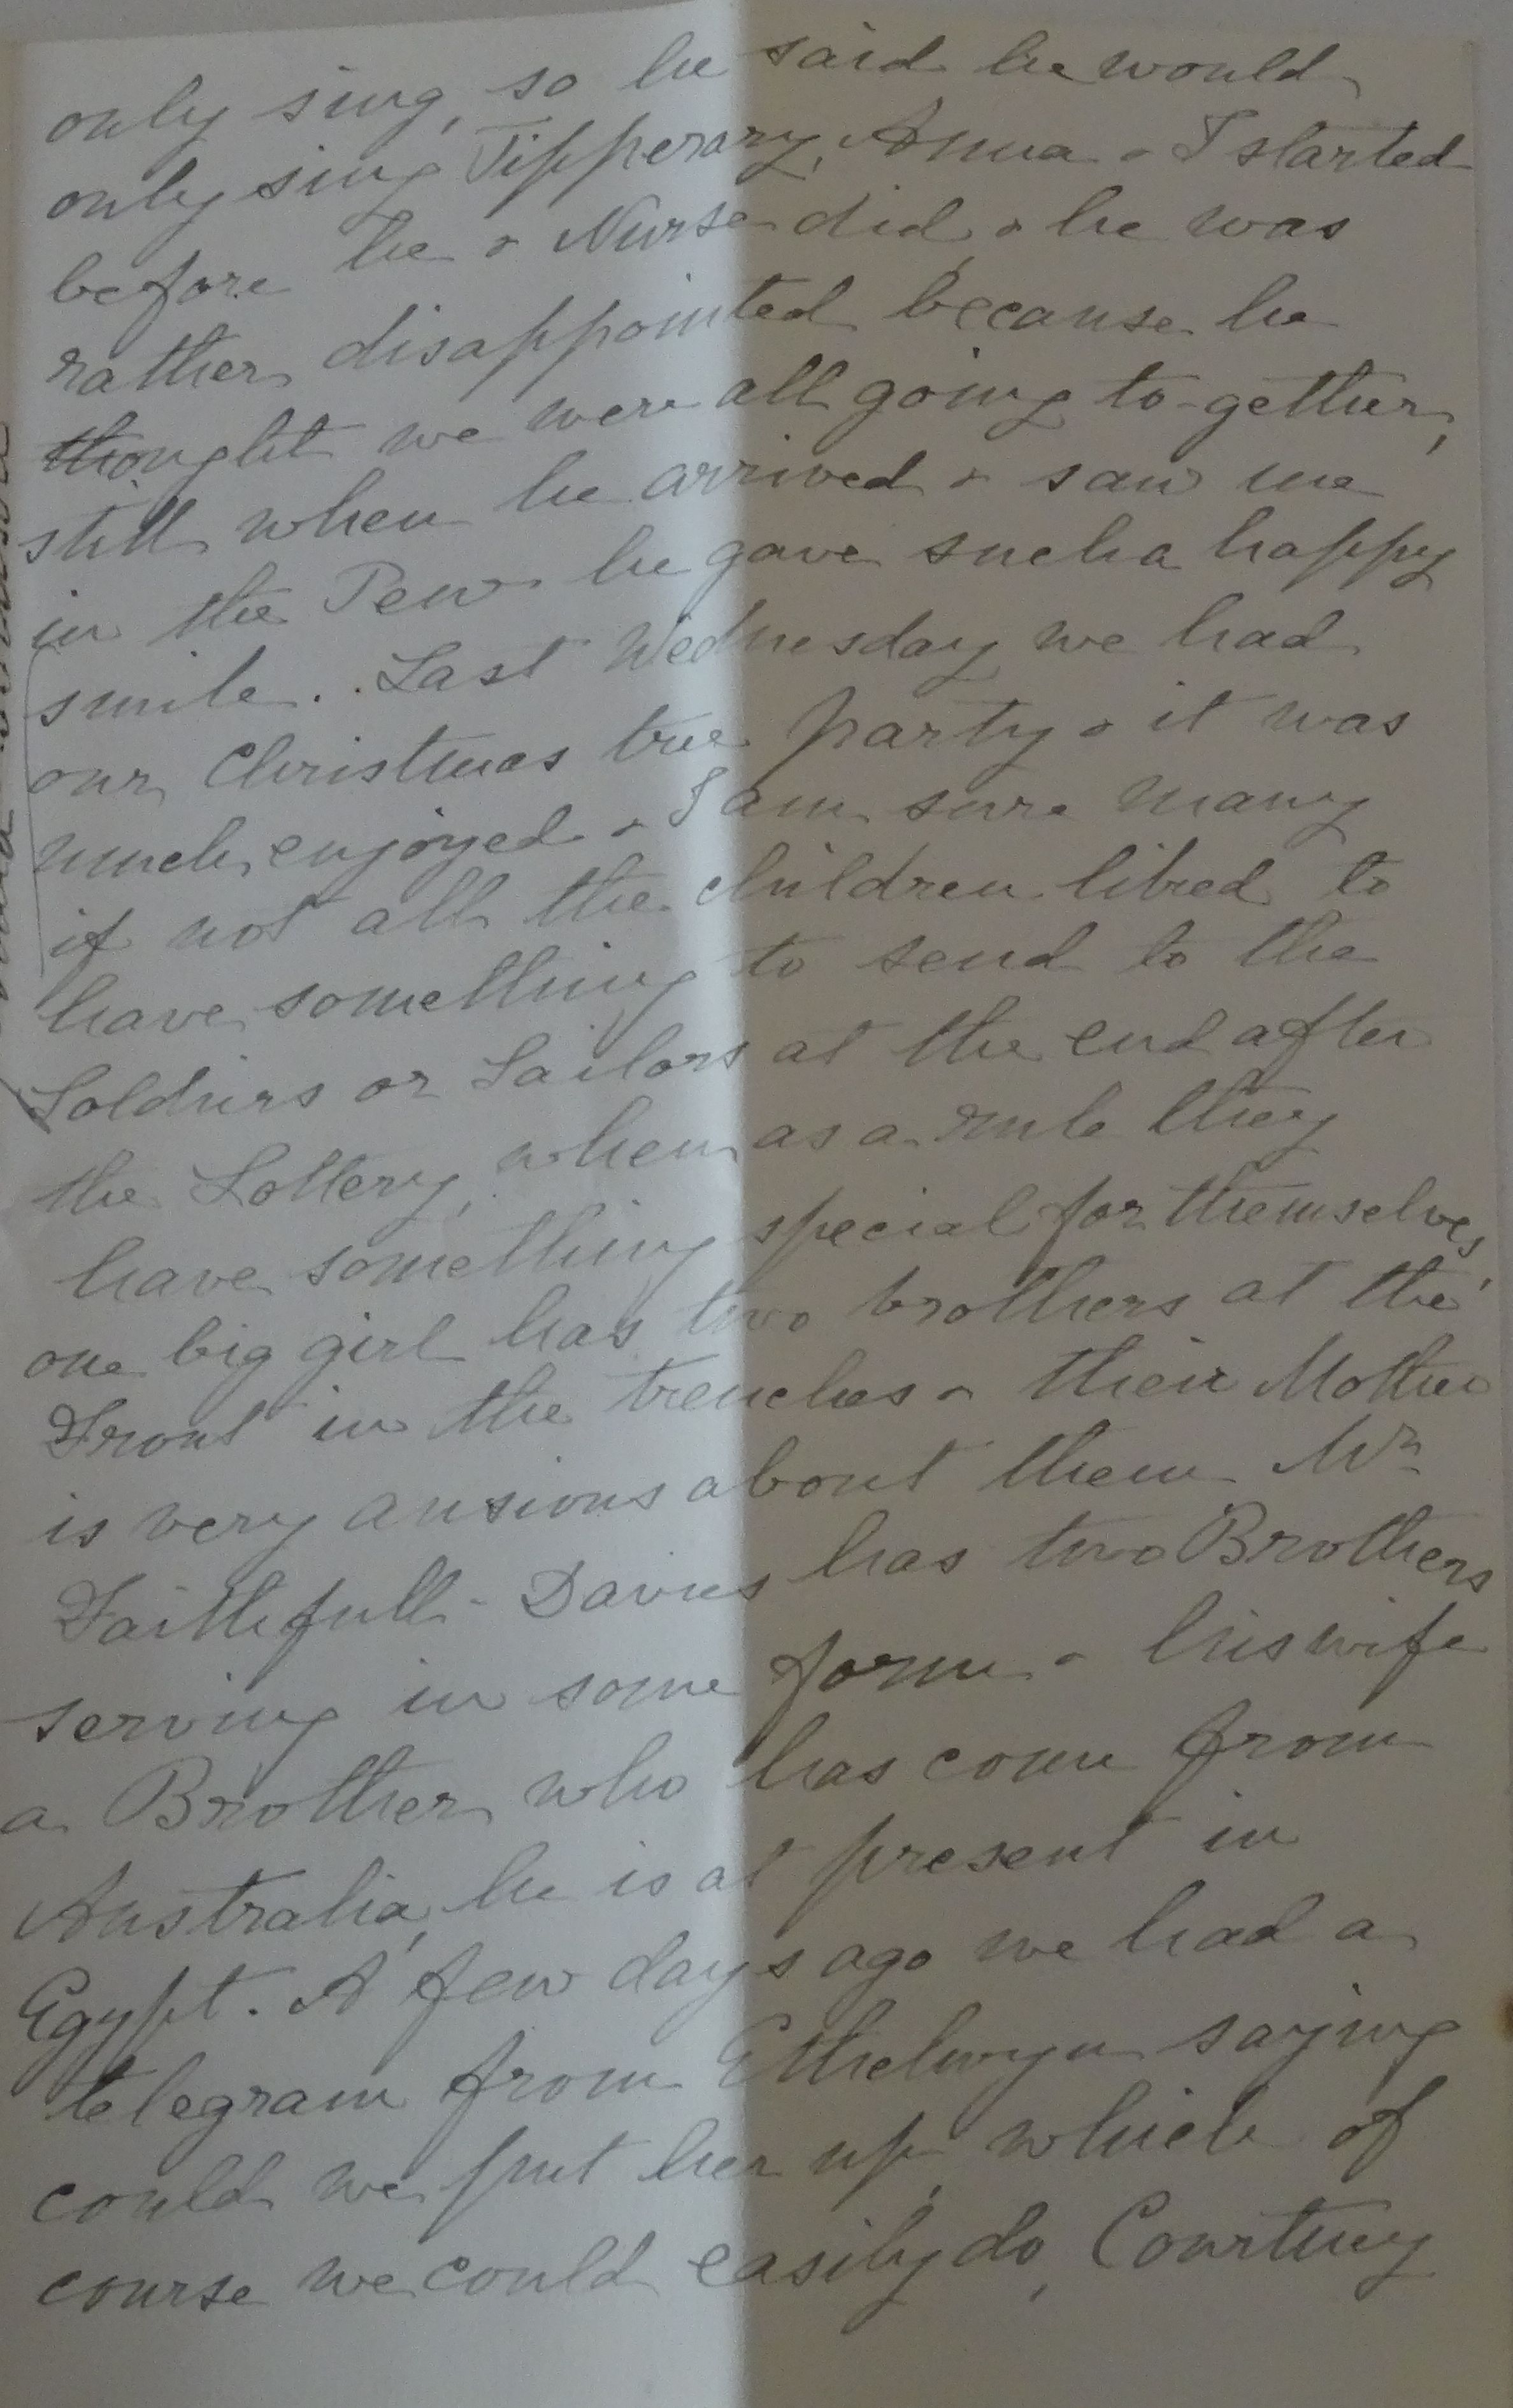 only sing, so he said he would
only sing Tipperary, Anna & I started
before he & Nurse did, & he was
rather disappointed because he
thought we were all going to-gether,
still when he arrived & saw me
in the Pew he gave such a happy
smile. Last Wednesday we had
our Christmas tree party & it was
much enjoyed & I am sure many
if not all the children liked to
have something to send to the
Soldiers or Sailors at the end after
the Lottery, when as a rule they
have something special for themselves,
one big girl has two brothers at the
Front in the trenches & their Mother
is very anxious about them Mr
Faithfull-Davies has two Brothers
serving in some form & his wife
a Brother who has come from
Australia, he is at present in
Egypt. A few days ago we had a
telegram from Ethelwyn saying
could we put her up, which of
course we could easily do, Courtney